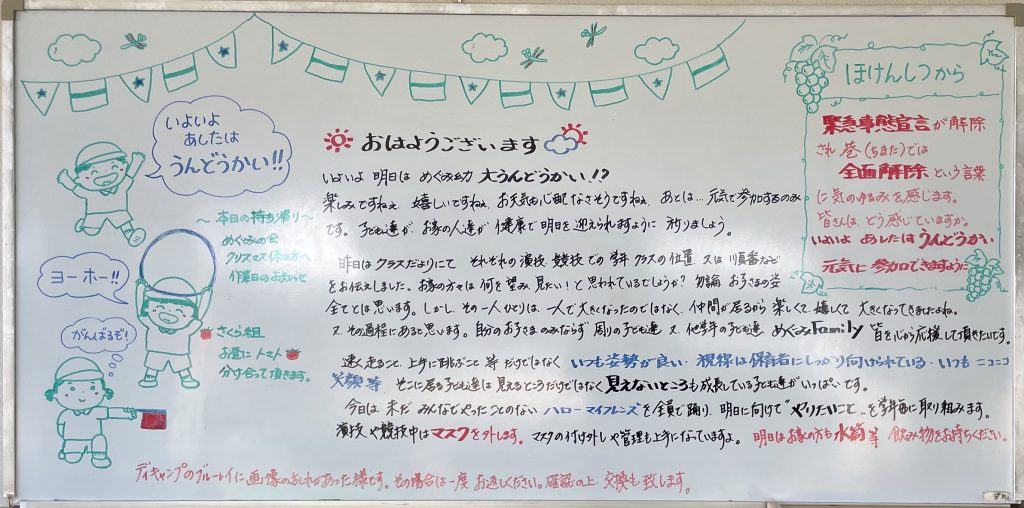 いよいよ
あしたは
うんどうかい!!
ヨーホー!!
がんばるぞ!
〜本日の持ち帰り〜
めぐみの会
クリスマス係の方へ
作業日のお知らせ
さくら組
お昼にトマト
分け合って頂きます。
おはようございます
いよいよ 明日は めぐみ幼 大うんどうかい!!?
楽しみですねぇ 嬉しいですねぇ お天気も心配なさそうですねぇ、あとは… 元気で参加するのみ
です。子ども達が お家の人達が 健康で明日を迎えられますように 祈りましょう。
昨日は クラスだよりにて それぞれの演技、競技での 学年 クラスの位置、又は 順番など
をお伝えしました。お家の方々は 何を望み、見たい!と思われているでしょうか? 勿論 お子さまの姿
全てとは思います。しかし、その一人ひとりは 一人で大きくなったのではなく、仲間が居るから 楽しくて、嬉しくて 大きくなってきましたよね。
又、その過程にあると思います。自分のお子さまのみならず 周りの子ども達 又、他学年の子ども達 めぐみFamily 皆を心から応援して頂きたいです。
速く走ること、上手に跳ぶこと 等 だけではなく いつも姿勢が良い・視線は保育者にしっかり向けられている・いつも ニコニコ
笑顔 等 そこに居る子ども達は 見えるところだけではなく 見えないところも成長している子ども達がいっぱいです。
今日は 未だ みんなでやったことのない ハローマイフレンズを全員で踊り、明日に向けて"やりたいこと"を学年毎に取り組みます。
演技や競技中はマスクを外します。マスクの付け外しや管理も上手になっていますよ。明日はお家の方も水筒等 飲み物をお持ちください。
デイキャンプのブルーレイに画像のみだれがあった様です。その場合は一度 お返しください。確認の上、交換も致します。
ほけんしつから
緊急事態宣言が解除
され 巷(ちまた)では
全面解除という言葉
に気のゆるみを感じます。
皆さんは、どう感じていますか。
いよいよ あしたは うんどうかい
元気に参加できますように